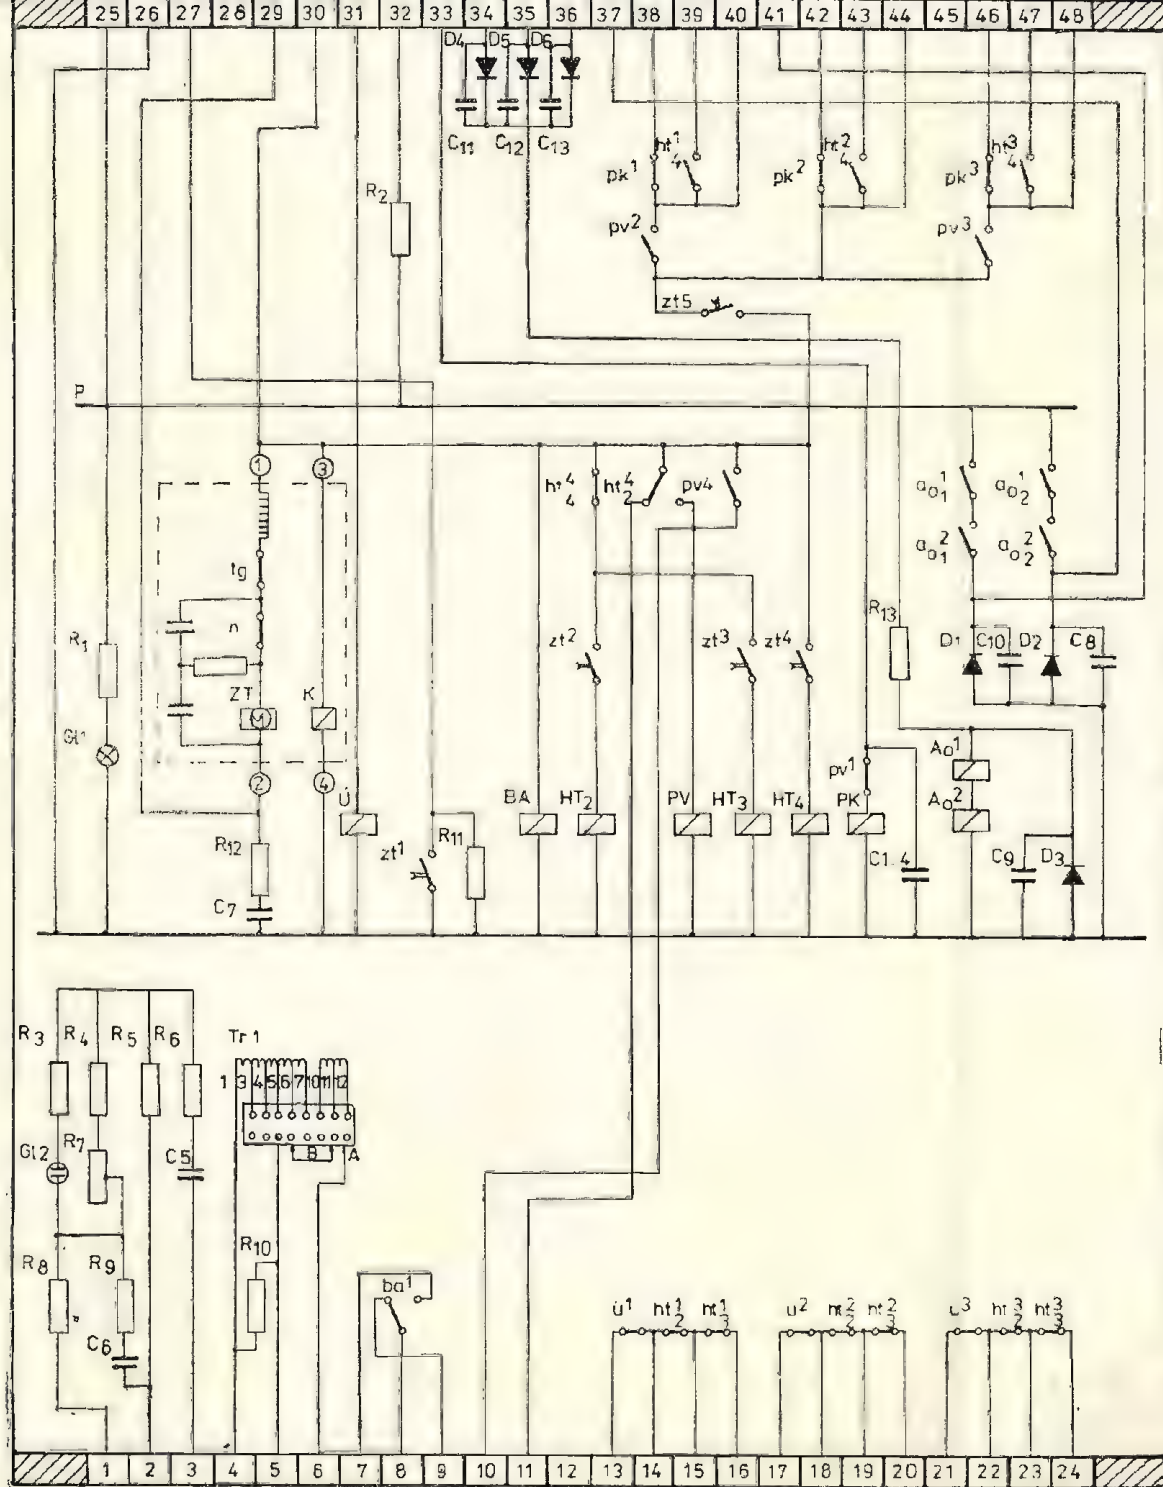 25 26 27 28 29 30 31 32 33 34 35 36 37 38 39 40 41 42 43 44 45 46 47 48
D4 D5 D6
C11 C12 C13
pk1 ht14 pk2 ht24 pk3 ht34
R2
pv2 pv3
zt5
P
1 3
ht44 ht42 pv4
ao11 ao12
ao21 ao22
tg
R1 n
R13
zt2 zt3 zt4
D1 C10 D2 C8
ZT K
M
Gl1
Ao1
pv1
2 4
Ü BA HT2 PV HT3 HT4 PK
Ao2
R12 zt1 R11
C1.4 C9 D3
C7
R3 R4 R5 R6 Tr1
1 3 4 5 6 7 10 11 12
Gl2 R7 C5 B A
R8 R9 R10
ba1
C6
ü1 ht12 ht13 u2 ht22 ht23 u3 ht32 ht33
1 2 3 4 5 6 7 8 9 10 11 12 13 14 15 16 17 18 19 20 21 22 23 24